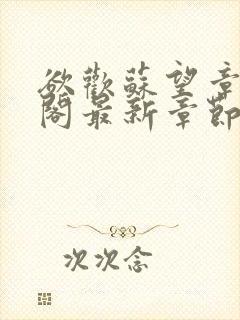 欲歡蘇望章
閣最新章節
次次念